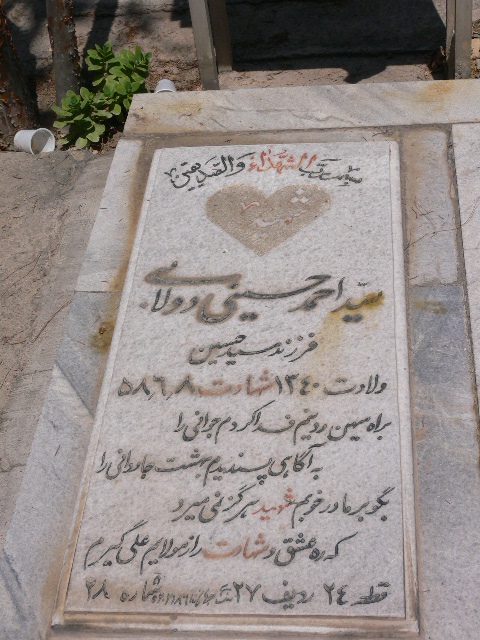 بسم رب الشهداء والصدیقین
شهید
سید احمد حسینی دولابی
فرزند سید حسین
ولادت ۱۳۴۰ شهادت ۵۸٫۶٫۸
براه میهن و دینم فدا کردم جوانی را
به آگاهی پسندیدم بهشت جاودانی را
بگو بر مادر خوبم شهید هرگز نمی میرد
که ره عشق و شهادت را ز مولایم علی گیرم
قطعه ۲۴ ردیف ۲۷ شماره ۲۸